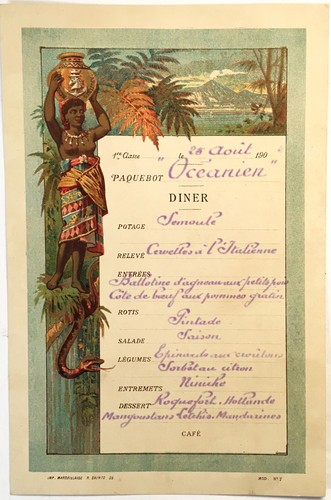 1re Classe " le 28 Août 190 "
PAQUEBOT Océanien
DINER
POTAGE Semoule
RELEVÉ Cervelles à l'Italienne
ENTRÉES
Ballotine d'agneau aux petits pois
Côte de bœuf aux pommes gratin
ROTIS Pintade
SALADE Saison
LÉGUMES Epinards aux croutons
Sorbet au citron
ENTREMETS Niniche
DESSERT Roquefort, Hollande
Mangoustans Letchis, Mandarines
CAFÉ
IMP. MARSEILLAISE R. SAINTE 39
MOD. Nº 7